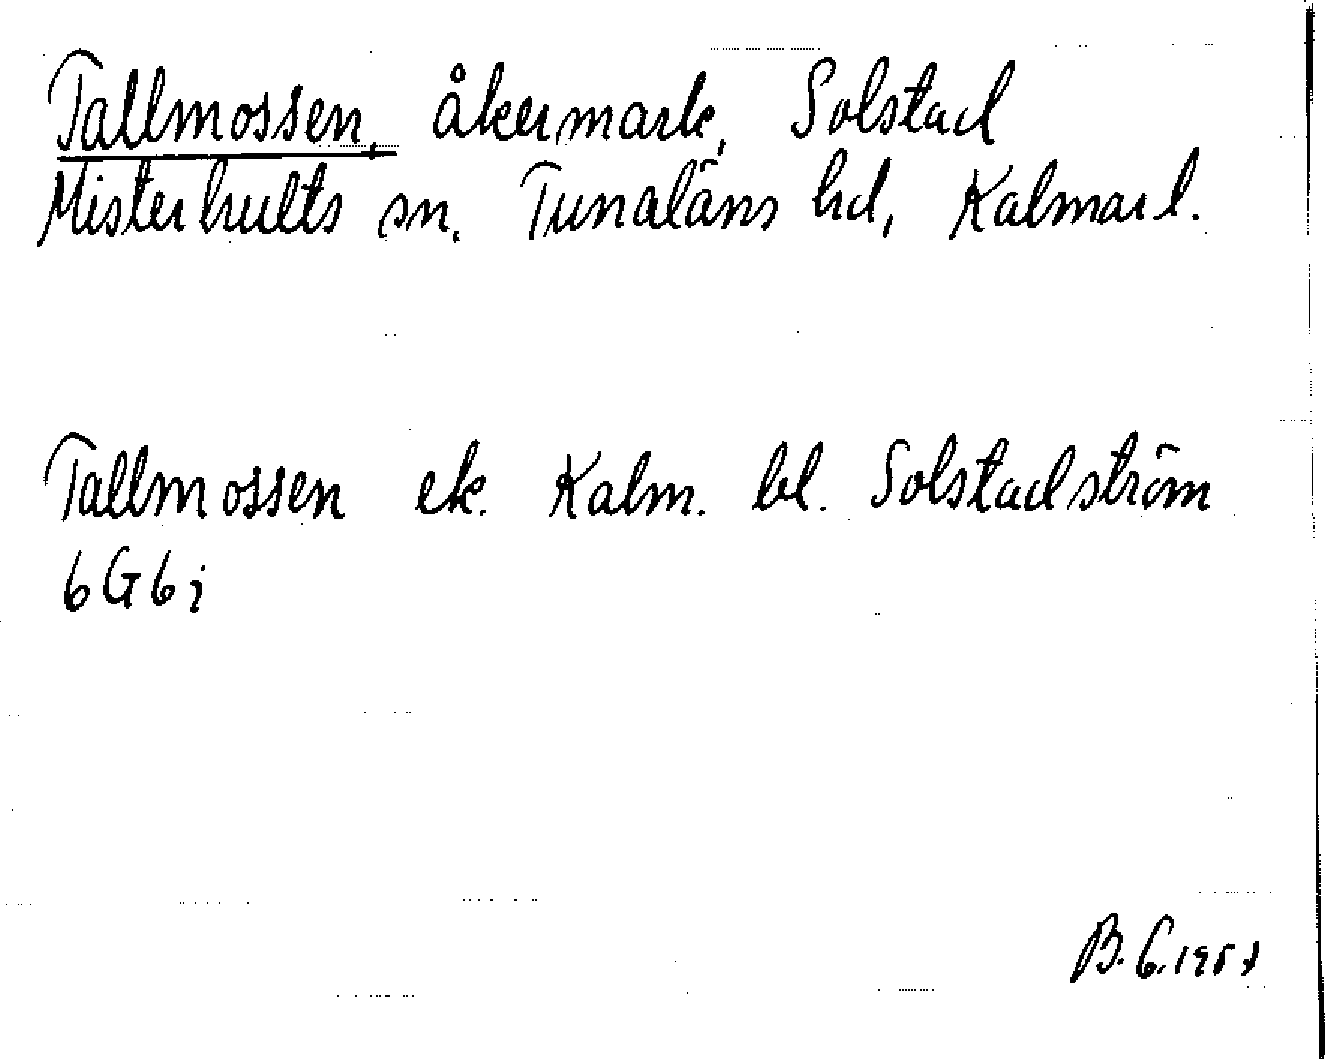 Tallmossen, åkermark, Solstad
Misterhults sn. Tunaläns hd, Kalmar l.
Tallmossen ek. Kalm. bl. Solstadström
6G6i
B.G.